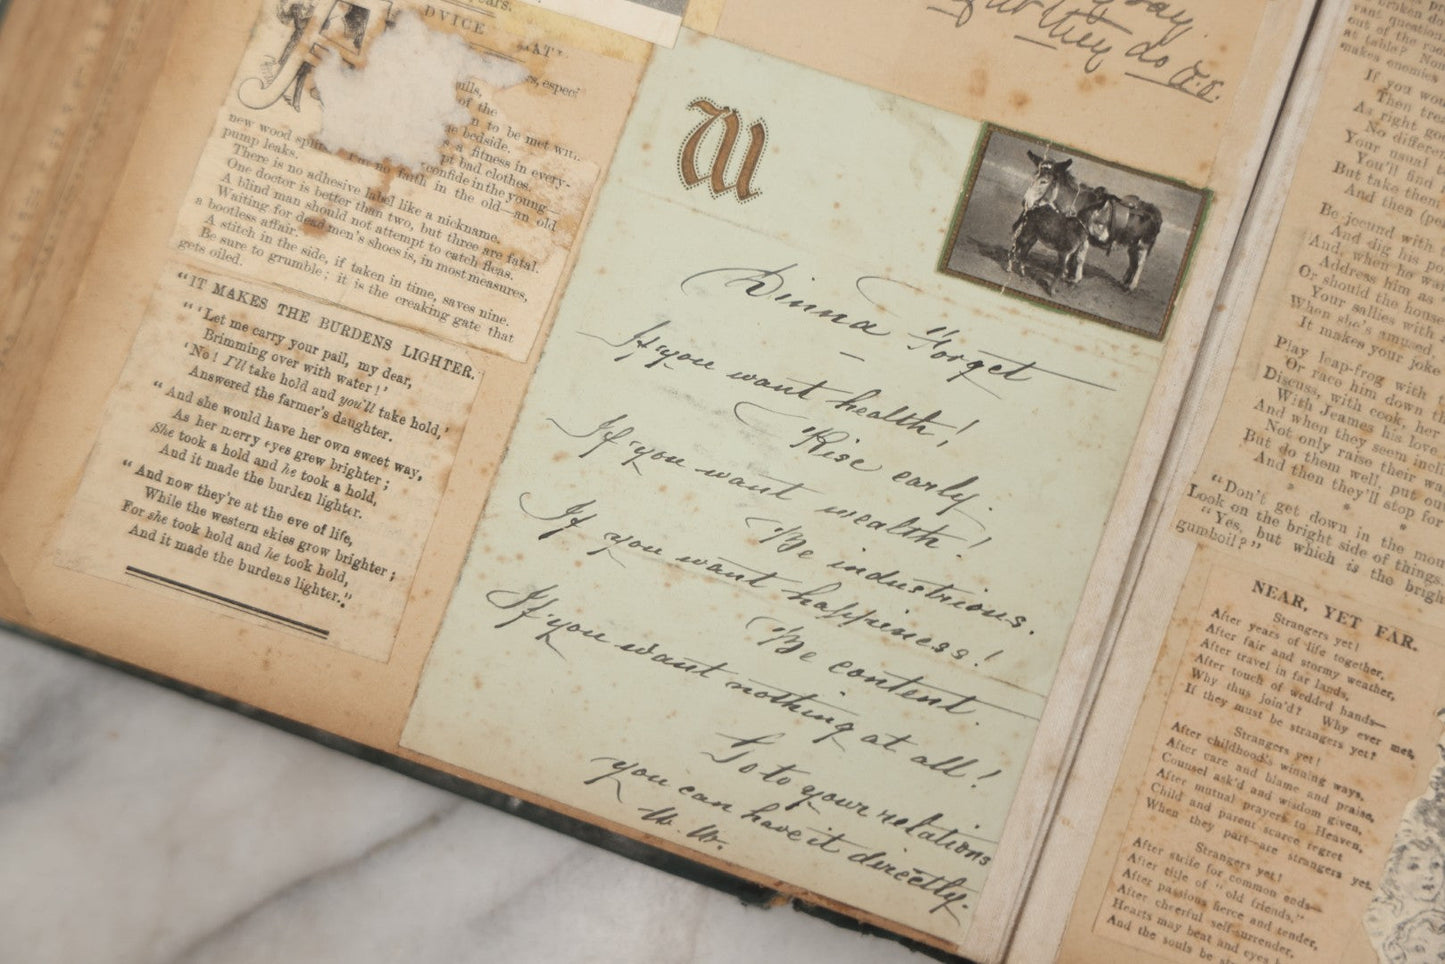 ears.
DVICE
, espec
pills,
of the
n to be met with
e bedside.
s a fitness in every-
pt bad clothes.
confide in the young—
new wood
no faith in the old—an old
pump leaks.
There is no adhesive label like a nickname.
One doctor is better than two, but three are fatal.
A blind man should not attempt to catch fleas.
Waiting for dead men's shoes is, in most measures,
a bootless affair.
A stitch in the side, if taken in time, saves nine.
Be sure to grumble; it is the creaking gate that
gets oiled.
"IT MAKES THE BURDENS LIGHTER.
"'Let me carry your pail, my dear,
Brimming over with water!'
'No! I'll take hold and you'll take hold,'
Answered the farmer's daughter.
"And she would have her own sweet way,
As her merry eyes grew brighter;
She took a hold and he took a hold,
And it made the burden lighter.
"And now they're at the eve of life,
While the western skies grow brighter;
For she took hold and he took hold,
And it made the burdens lighter."
they do
W
Dinna Forget
—
If you want health!
Rise early.
If you want wealth!
Be industrious.
If you want happiness!
Be content.
If you want nothing at all!
Go to your relations
you can have it directly.
out of the
at table?
makes enemies
If you wou
Then trea
As right go
No differen
Your usual t
You'll find
But take them
And then (pe
Be jocund with
And dig his po
And, when he wa
Address him as
Or should the house
Your sallies with
When she's amused,
It makes your joke
Play leap-frog with
Or race him down th
Discuss, with cook, her
With Jeames his love
And when they seem incli
Not only raise their wa
But do them well, put ou
And then they'll stop for
* * *
"Don't get down in the mou
Look on the bright side of things.
"Yes, but which is the brigh
gumboil?"
NEAR, YET FAR.
Strangers yet!
After years of life together,
After fair and stormy weather,
After travel in far lands,
After touch of wedded hands—
Why thus join'd? Why ever met,
If they must be strangers yet?
Strangers yet!
After childhood's winning ways,
After care and blame and praise,
Counsel ask'd and wisdom given,
After mutual prayers to Heaven,
Child and parent scarce regret
When they part—are strangers yet.
Strangers yet!
After strife for common ends—
After title of "old friends,"
After passions fierce and tender,
After cheerful self-surrender,
Hearts may beat and eyes
And the souls be